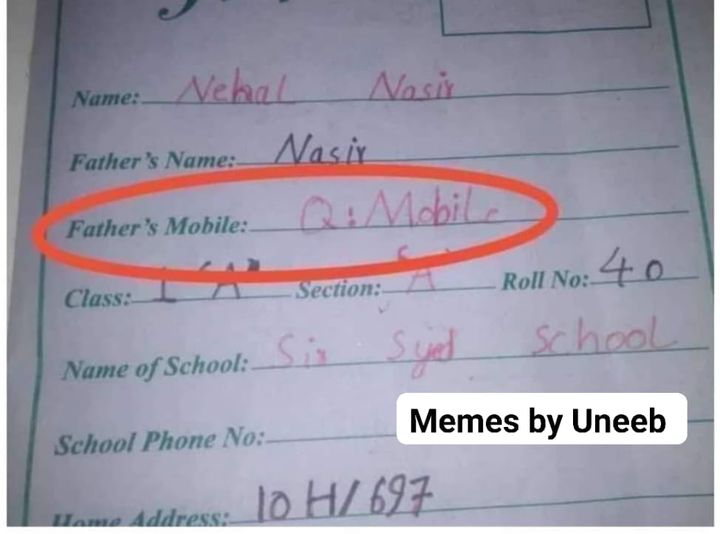 Name: Nehal Nasir
Father's Name: Nasir
Father's Mobile: Q:Mobile
Class: I "A" Section: "A" Roll No: 40
Name of School: Sir Syed School
Memes by Uneeb
School Phone No:
Home Address: 10 H/697